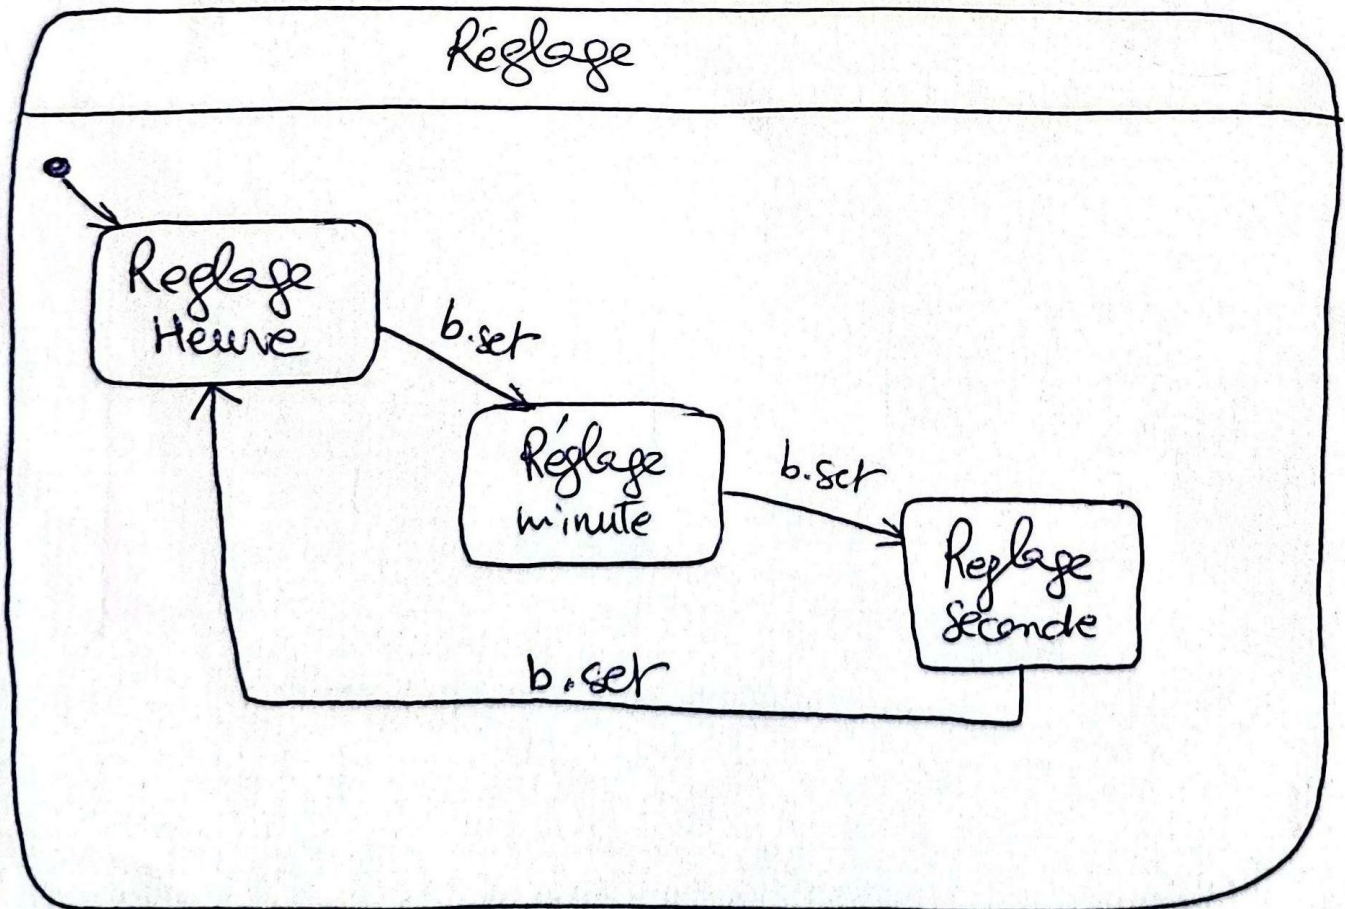 Réglage
Reglage
Heure
b.set
Réglage
minute
b.set
Reglage
seconde
b.set